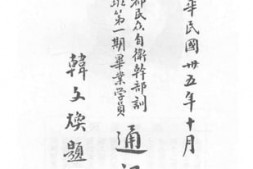 華民國卅五年十月
都民众自衛幹部訓
班第一期畢業学員
通
韓文煥題